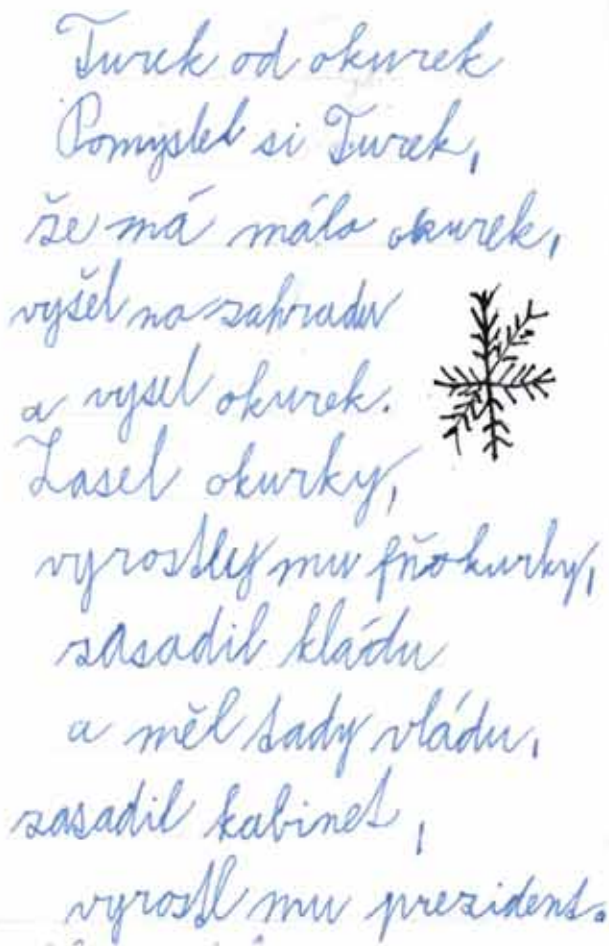 Turek od okurek
Pomyslel si Turek,
že má málo okurek,
vyšel na zahradu
a vysel okurek.
Zasel okurky,
vyrostly mu fňokurky,
zasadil kládu
a měl tady vládu,
zasadil kabinet,
vyrostl mu prezident.